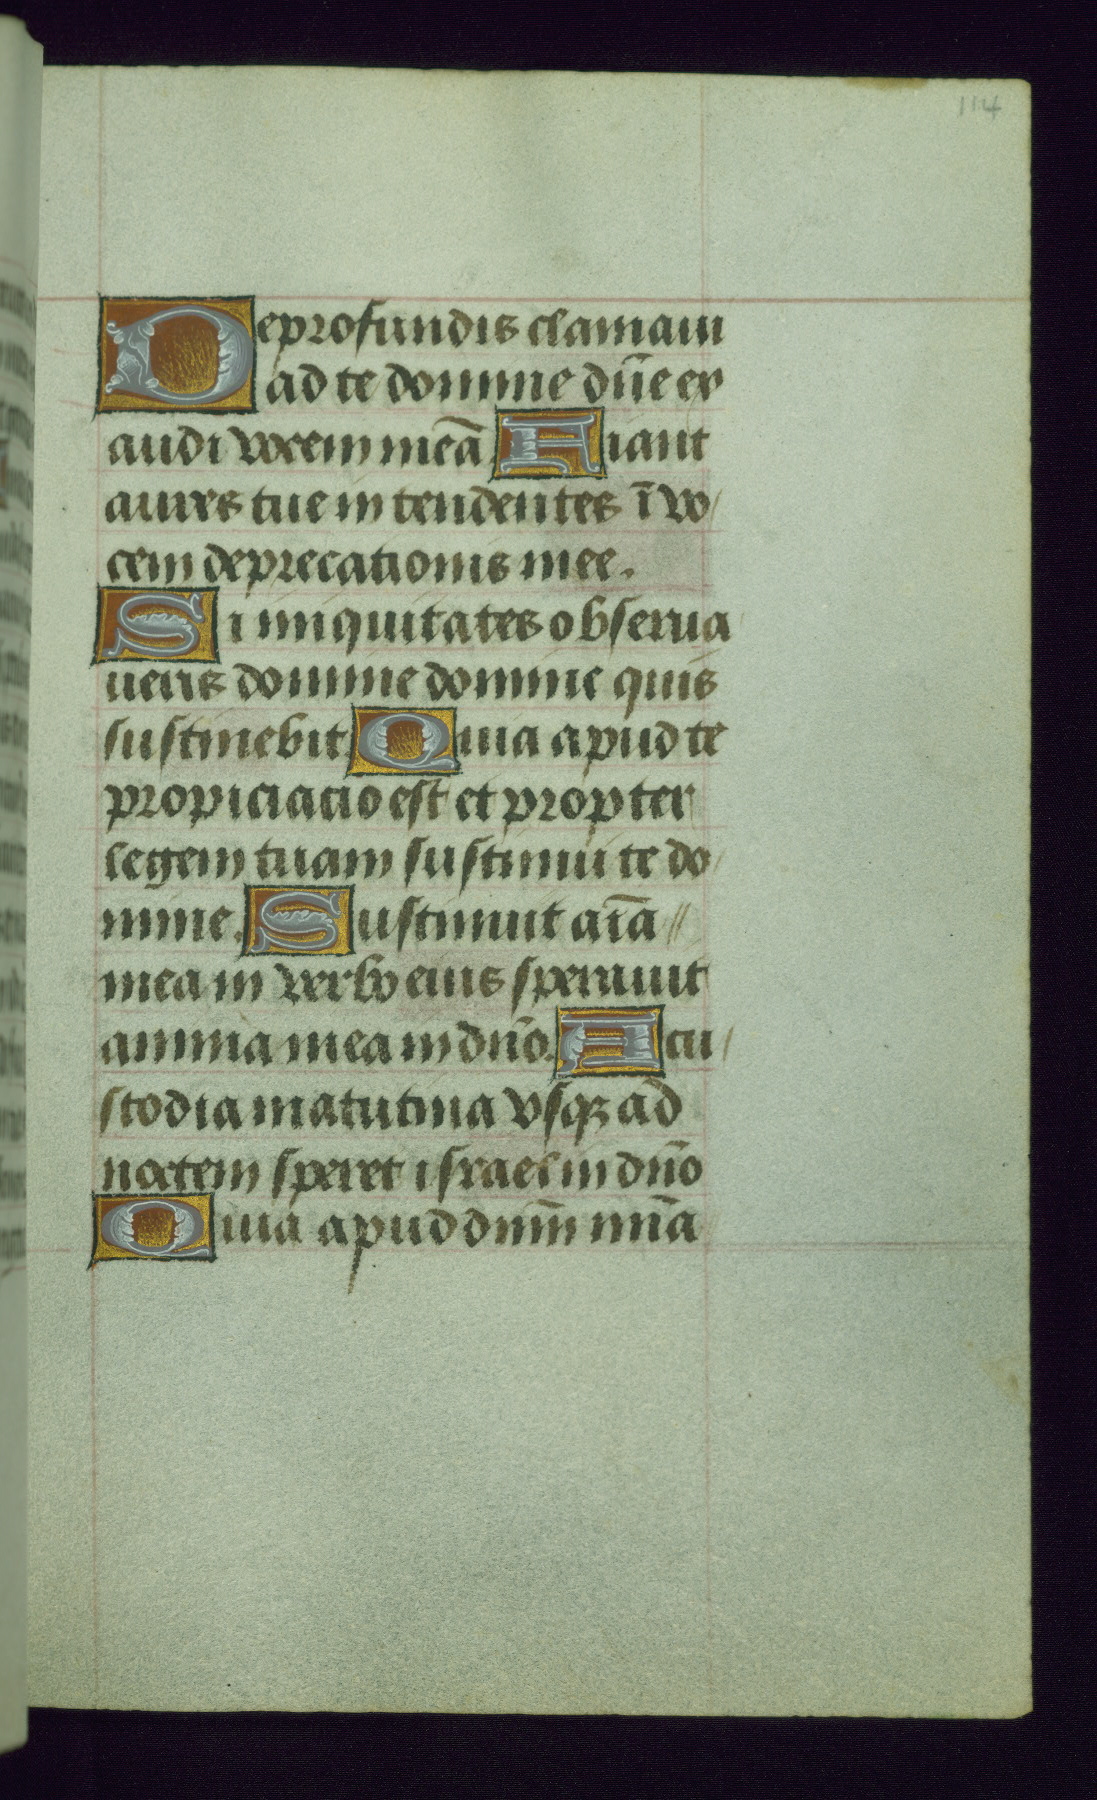 114
De profundis clamaui
ad te domine dn̄e ex
audi vocem meā. Fiant
aures tue in tendentes ī vo/
cem deprecationis mee.
Si iniquitates obserua
ueris domine domine quis
sustinebit. Quia apud te
propiciacio est et propter
legem tuam sustinui te do/
mine. Sustinuit aīa //
mea in verbo eius sperauit
anima mea in dn̄o. A cu/
stodia matutina vsqꝫ ad
noctem speret israel in dn̄o
Quia apud dnm̄ mīa